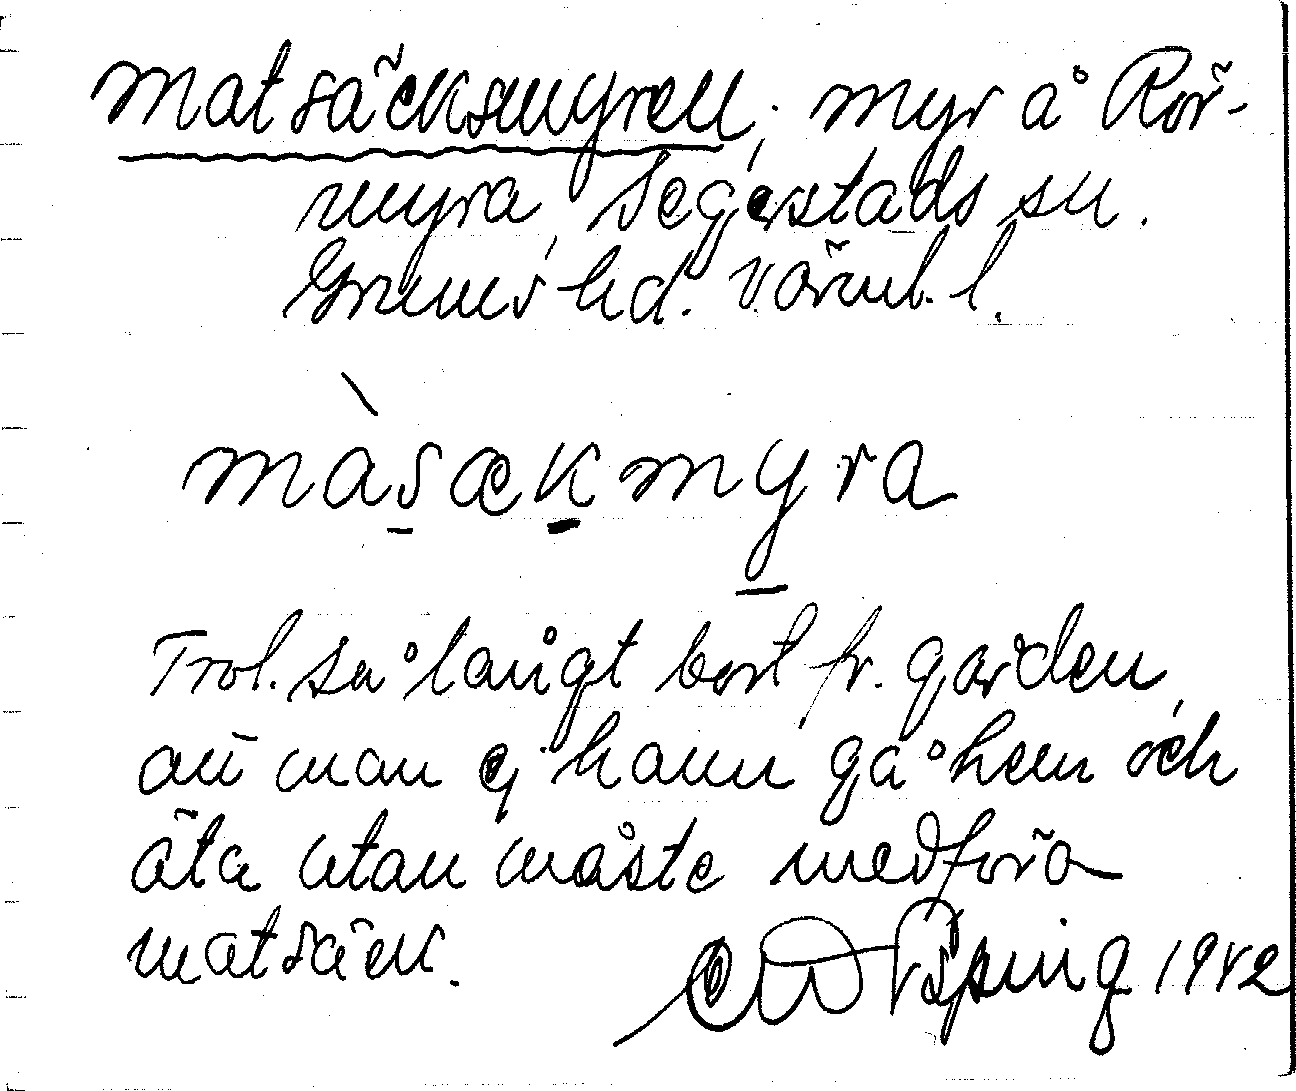 matsäcksmyren, myr å Rör-
myra, Segerstads sn.
Grums hd. Värml. l.
màsækmyra
Trol. så långt bort fr. gården,
att man ej hann gå hem och
äta utan måste medföra
matsäck.
1942